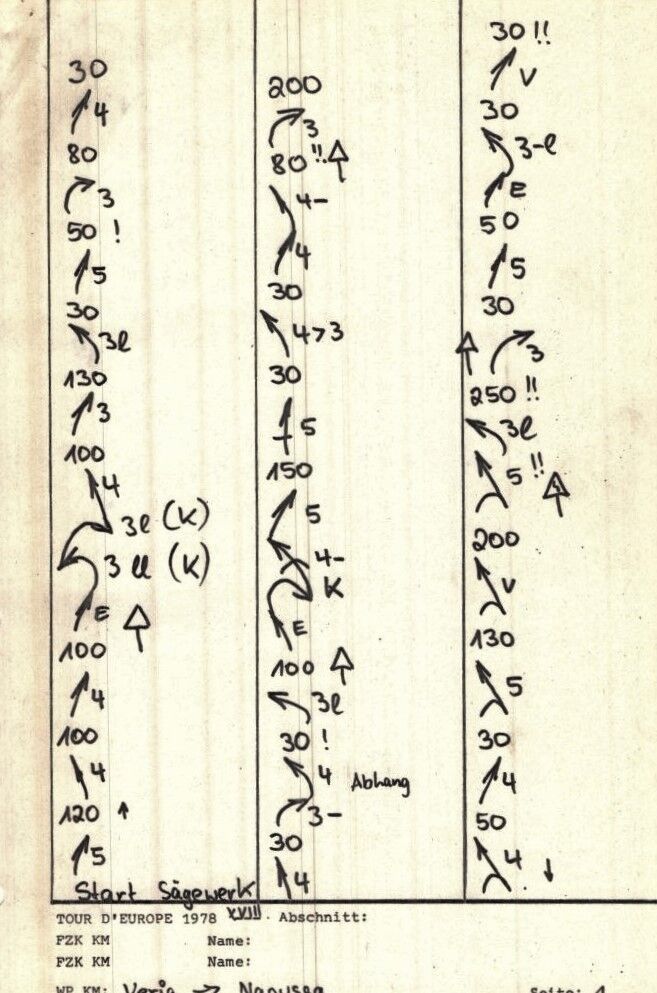 30
4
80
3
50 !
5
30
3l
130
3
100
4
3l (K)
3 ll (K)
E
100
4
100
4
120
5
Start Sägewerk
200
3
80 !!
4-
4
30
4>3
30
5
150
5
4-
K
E
100
3l
30 !
4 Abhang
3-
30
4
30 !!
V
30
3-l
E
50
5
30
3
250 !!
3l
5 !!
200
V
130
5
30
4
50
4
TOUR D'EUROPE 1978 XVIII. Abschnitt:
FZK KM Name:
FZK KM Name:
WP KM: Veria → Naoussa Seite: 1